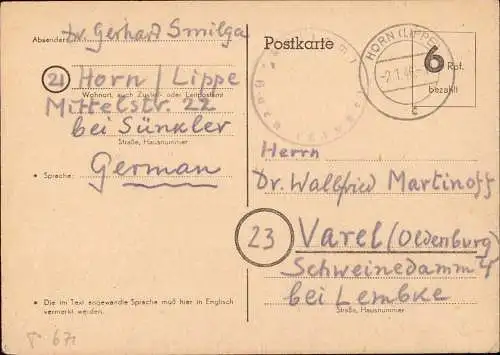 Absender: Dr. Gerhard Smilga
21 Horn / Lippe
Wohnort, auch Zustell- oder Leitpostamt
Mittelstr. 22
bei Sünkler
Straße, Hausnummer
Sprache: German
Die im Text angewandte Sprache muß hier in Englisch
vermerkt werden.
Postkarte
HORN (LIPPE)
c
6 Rpf.
bezahlt
Herrn
Dr. Wallfried Martinoff
23 Varel (Oldenburg)
Schweinedamm 4
bei Lembke
Straße, Hausnummer